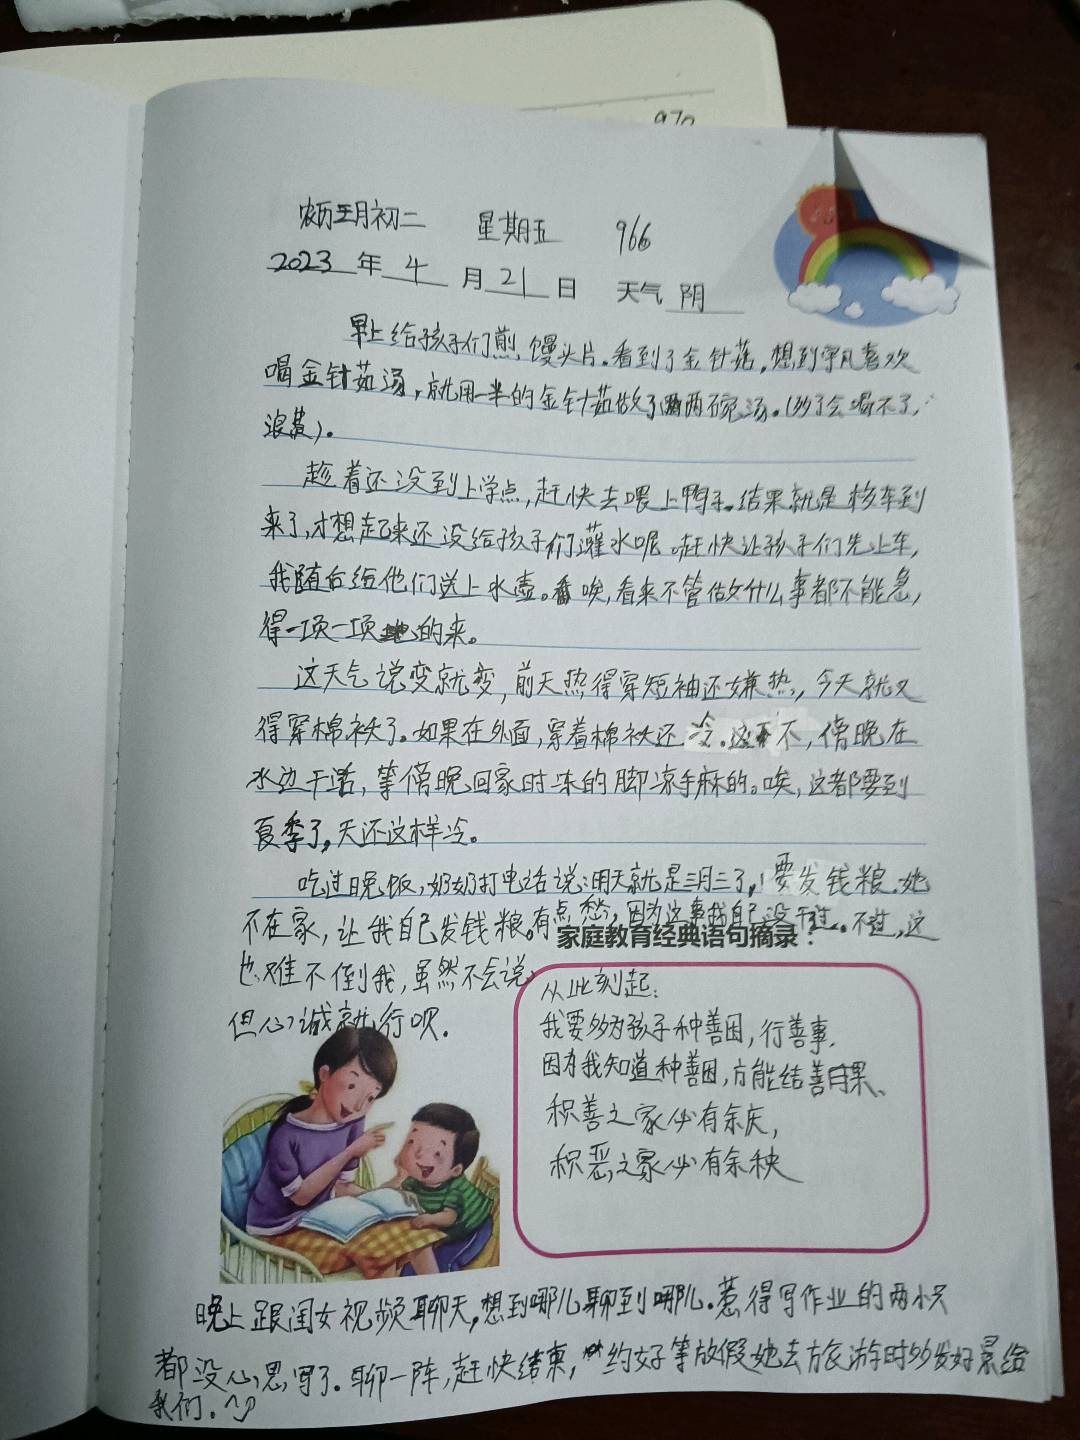 970
农历三月初二 星期五 966
2023年4月21日 天气 阴
早上给孩子们煎馒头片。看到了金针菇,想到宇凡喜欢
喝金针菇汤,就用一半的金针菇做了两碗汤。(多了会喝不了,
浪费)。
趁着还没到上学点,赶快去喂上鸭子。结果就是校车到
来了,才想起来还没给孩子们灌水呢。赶快让孩子们先上车,
我随后给他们送上水壶。唉,看来不管做什么事都不能急,
得一项一项的来。
这天气说变就变,前天热得穿短袖还嫌热,今天就又
得穿棉袄了。如果在外面,穿着棉袄还冷。这不,傍晚在
水边干活,等傍晚回家时冻的脚凉手麻的。唉,这都要到
夏季了,天还这样冷。
吃过晚饭,奶奶打电话说:明天就是三月三了,要发钱粮。她
不在家,让我自己发钱粮。有点愁,因为这事我自己没干过。不过,这
也难不倒我,虽然不会说,
但心诚就行呗.
家庭教育经典语句摘录:
从此刻起:
我要多为孩子种善因,行善事.
因为我知道种善因,方能结善果、
积善之家必有余庆,
积恶之家必有余秧
晚上跟闺女视频聊天,想到哪儿聊到哪儿.惹得写作业的两小只
都没心思写了.聊一阵,赶快结束,约好等放假她去旅游时多发好景给
我们.